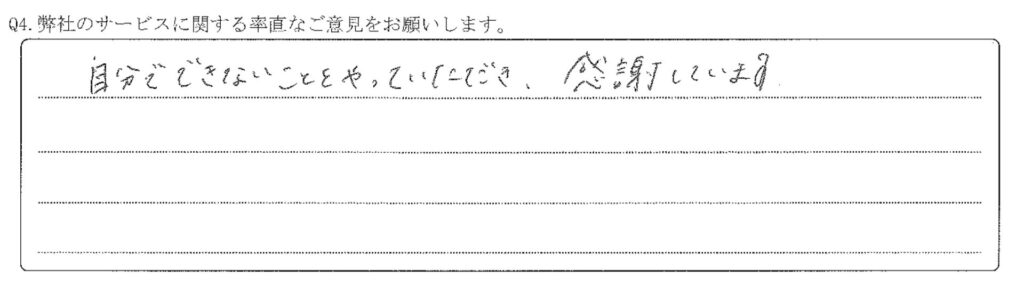 Q4. 弊社のサービスに関する率直なご意見をお願いします。
自分でできないことをやっていただき、感謝しています